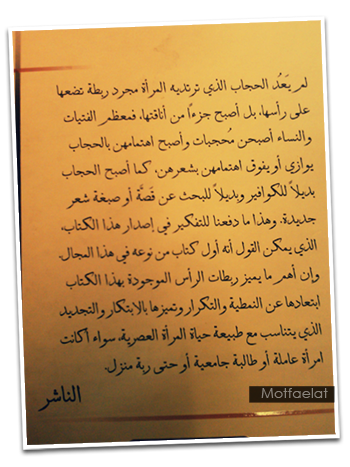 لم يَعُد الحجاب الذي ترتديه المرأة مجرد ربطة تضعها
على رأسها، بل أصبح جزءاً من أناقتها، فمعظم الفتيات
والنساء أصبحن مُحجبات وأصبح اهتمامهن بالحجاب
يوازي أو يفوق اهتمامهن بشعرهن، كما أصبح الحجاب
بديلاً للكوافير وبديلاً للبحث عن قَصَّة أو صبغة شعر
جديدة. وهذا ما دفعنا للتفكير في إصدار هذا الكتاب،
الذي يمكن القول أنه أول كتاب من نوعه في هذا المجال.
وإن أهم ما يميز ربطات الرأس الموجودة بهذا الكتاب
ابتعادها عن النمطية والتكرار وتميزها بالابتكار والتجديد
الذي يتناسب مع طبيعة حياة المرأة العصرية، سواء أكانت
امرأة عاملة أو طالبة جامعية أو حتى ربة منزل.
الناشر
Motfaelat